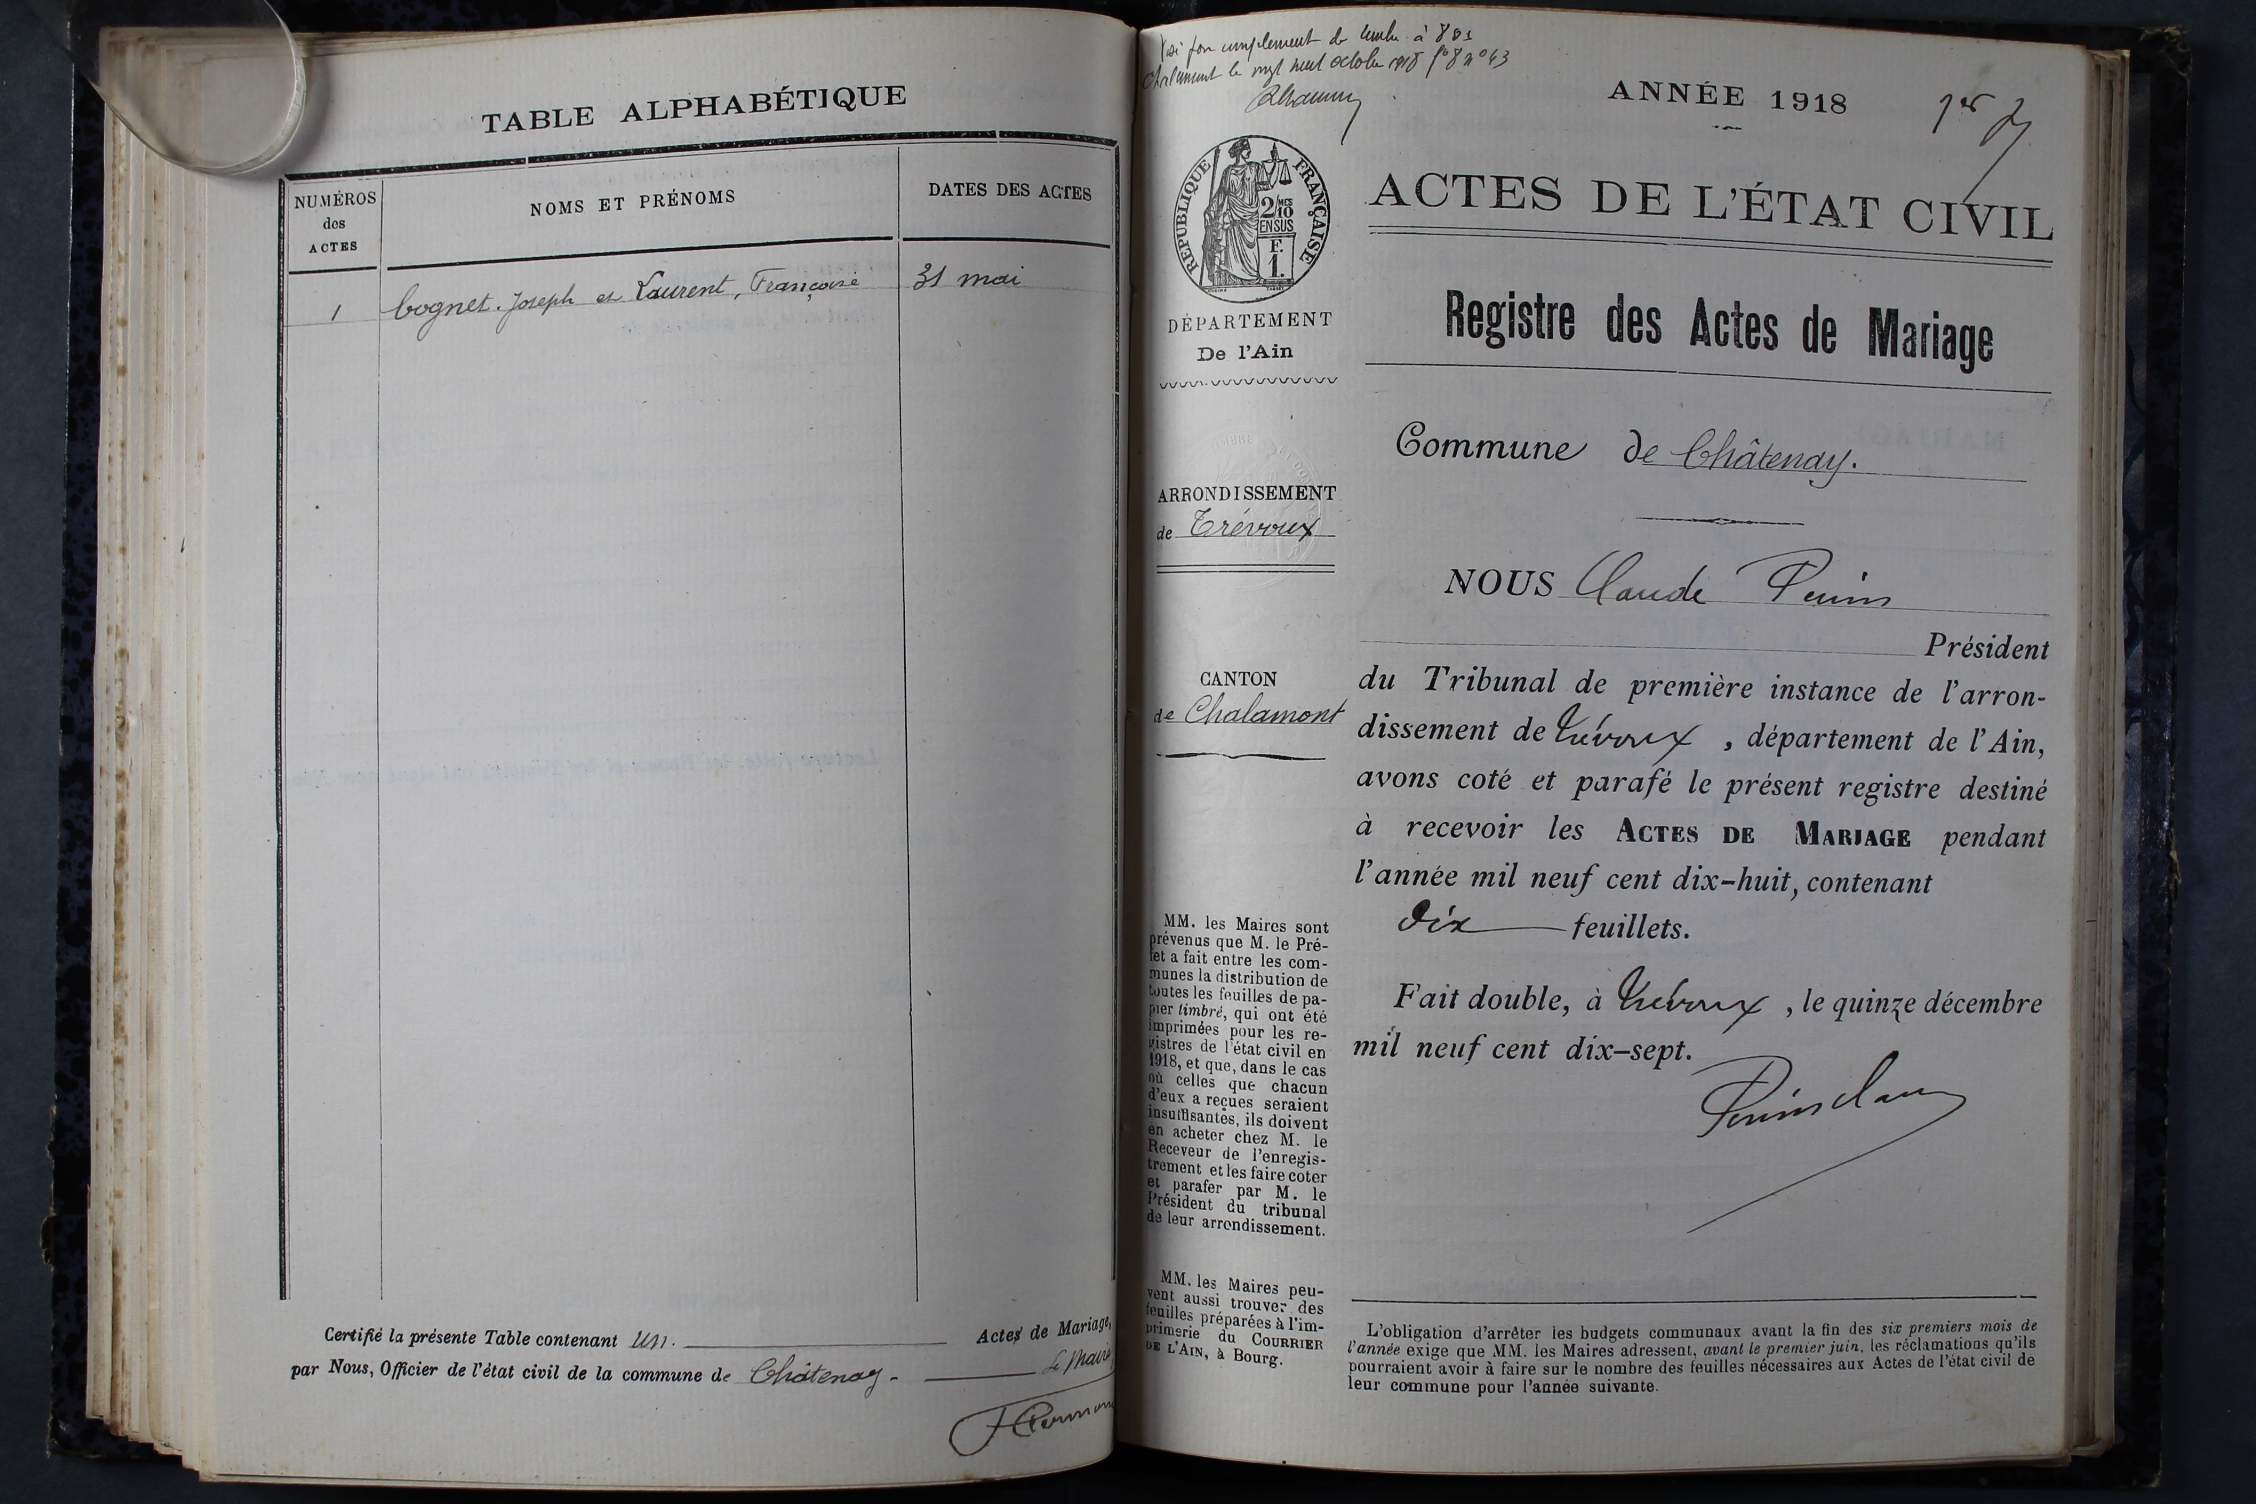 TABLE ALPHABÉTIQUE
NUMÉROS
des
ACTES
NOMS ET PRÉNOMS
DATES DES ACTES
1 Cognet Joseph et Laurent, Françoise 31 mai
Certifié la présente Table contenant un. Actes de Mariage,
par Nous, Officier de l'état civil de la commune de Châtenay - Le Maire
complément de timbre à
Chalamont le vingt neuf octobre 1918 f° 8 n° 43
ANNÉE 1918
1er
ACTES DE L'ÉTAT CIVIL
RÉPUBLIQUE FRANÇAISE
2/10 MES
EN SUS
F.
1.
DÉPARTEMENT
De l'Ain
Registre des Actes de Mariage
Commune de Châtenay.
ARRONDISSEMENT
de Trévoux
CANTON
de Chalamont
NOUS Claude
Président
du Tribunal de première instance de l'arron-
dissement de Trévoux, département de l'Ain,
avons coté et parafé le présent registre destiné
à recevoir les ACTES DE MARIAGE pendant
l'année mil neuf cent dix-huit, contenant
Dix feuillets.
Fait double, à Trévoux, le quinze décembre
mil neuf cent dix-sept.
MM. les Maires sont
prévenus que M. le Pré-
fet a fait entre les com-
munes la distribution de
toutes les feuilles de pa-
pier timbré, qui ont été
imprimées pour les re-
gistres de l'état civil en
1918, et que, dans le cas
où celles que chacun
d'eux a reçues seraient
insuffisantes, ils doivent
en acheter chez M. le
Receveur de l'enregis-
trement et les faire coter
et parafer par M. le
Président du tribunal
de leur arrondissement.
MM. les Maires peu-
vent aussi trouver des
feuilles préparées à l'im-
primerie du COURRIER
DE L'AIN, à Bourg.
L'obligation d'arrêter les budgets communaux avant la fin des six premiers mois de
l'année exige que MM. les Maires adressent, avant le premier juin, les réclamations qu'ils
pourraient avoir à faire sur le nombre des feuilles nécessaires aux Actes de l'état civil de
leur commune pour l'année suivante.